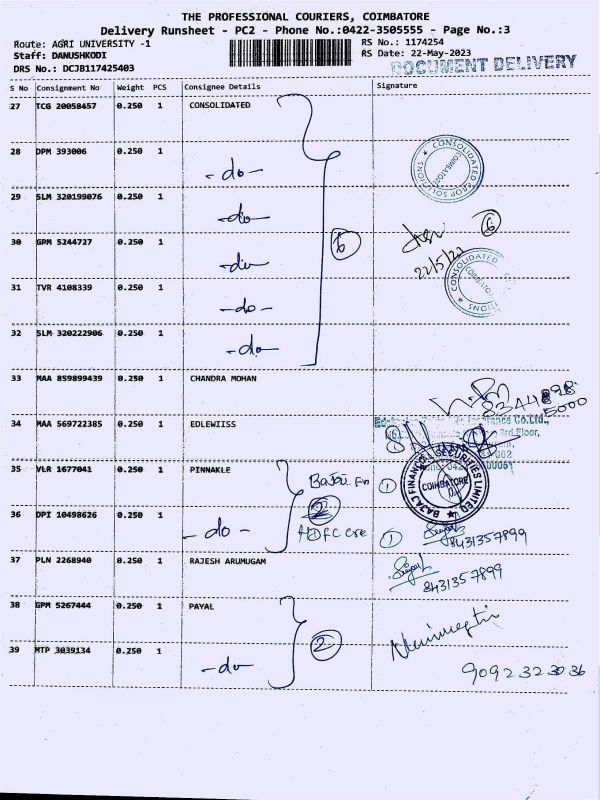 THE PROFESSIONAL COURIERS, COIMBATORE
Delivery Runsheet - PC2 - Phone No.:0422-3505555 - Page No.:3
Route: AGRI UNIVERSITY -1
RS No.: 1174254
Staff: DANUSHKODI
RS Date: 22-May-2023
DRS No.: DCJB117425403
DOCUMENT DELIVERY
S No Consignment No Weight PCS Consignee Details Signature
27 TCG 20058457 0.250 1 CONSOLIDATED
28 DPM 393006 0.250 1 -do-
CONSOLIDATED CROP SOLUTIONS COIMBATORE
29 SLM 320199076 0.250 1 -do-
30 GPM 5244727 0.250 1 -do- 6 6
22/5/23
CONSOLIDATED
31 TVR 4108339 0.250 1 -do-
32 SLM 320222906 0.250 1 -do-
33 MAA 859899439 0.250 1 CHANDRA MOHAN
5000
34 MAA 569722385 0.250 1 EDLEWIISS
Co.Ltd.,
3rd Floor,
BAJAJ FINANCIAL SECURITIES LIMITED COIMBATORE
35 VLR 1677041 0.250 1 PINNAKLE Bajaj Fin 1
2
36 DPI 10498626 0.250 1 -do- HDFC 1
8431357899
37 PLN 2268940 0.250 1 RAJESH ARUMUGAM
8431357899
38 GPM 5267444 0.250 1 PAYAL
2
39 MTP 3039134 0.250 1 -do-
9092323036